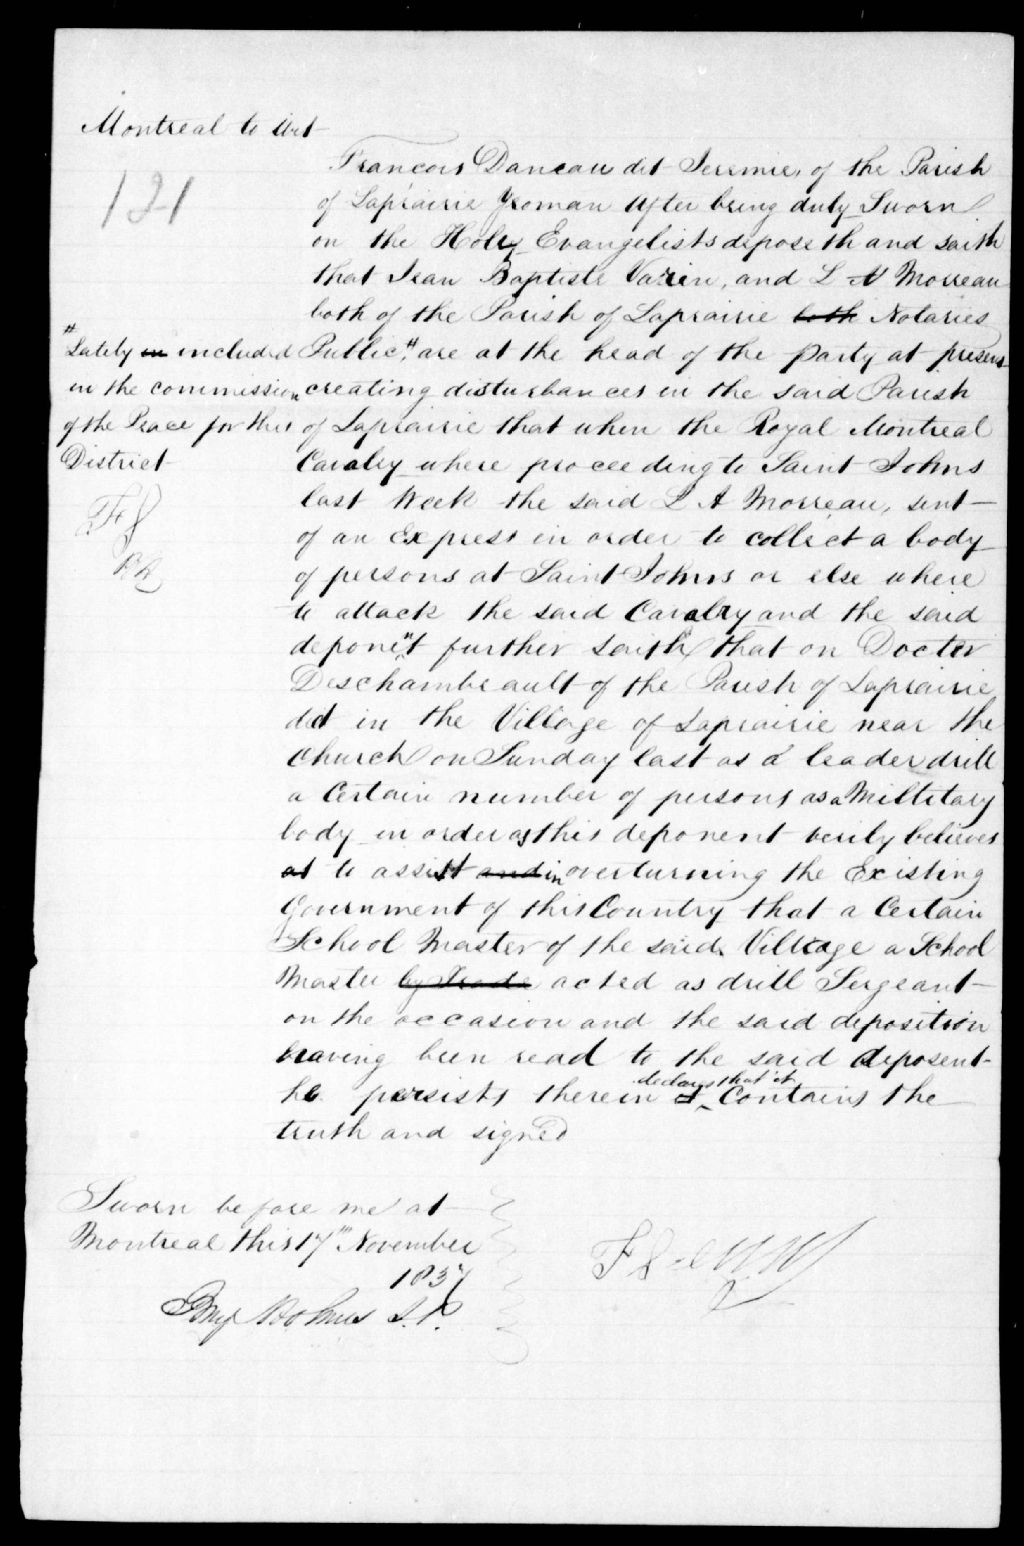 Montreal to Wit
121
Francois Daneau dit Jeremie, of the Parish
of Laprairie Yeoman after being duly Sworn
on the Holy Evangelists deposeth and saith
that Jean Baptiste Varin, and L A Morreau
both of the Parish of Laprairie both Notaries
Public," are at the head of the party at present
creating disturbances in the said Parish
of Laprairie that when the Royal Montreal
Cavalry where proceeding to Saint Johns
last Week the said L A Morreau, sent
of an Express in order to collect a body
of persons at Saint Johns or else where
to attack the said Cavalry and the said
deponent further saith that on Docter
Deschambeault of the Parish of Laprairie
did in the Village of Laprairie near the
Church on Sunday last as a leader drill
a Certain number of persons as a Millitary
body in order as this deponent verily believes
as to assist and in overturning the Existing
Government of this Country that a Certain
School Master of the said Village a School
Master by Trade acted as drill Sergeant
on the occasion and the said deposition
having been read to the said deposent
he persists therein & declares that it Contains the
truth and signed
"Lately in included
in the commission
of the Peace for this
District
FJ
Sworn before me at
Montreal this 17th November
1837
Benj Holmes J.P.